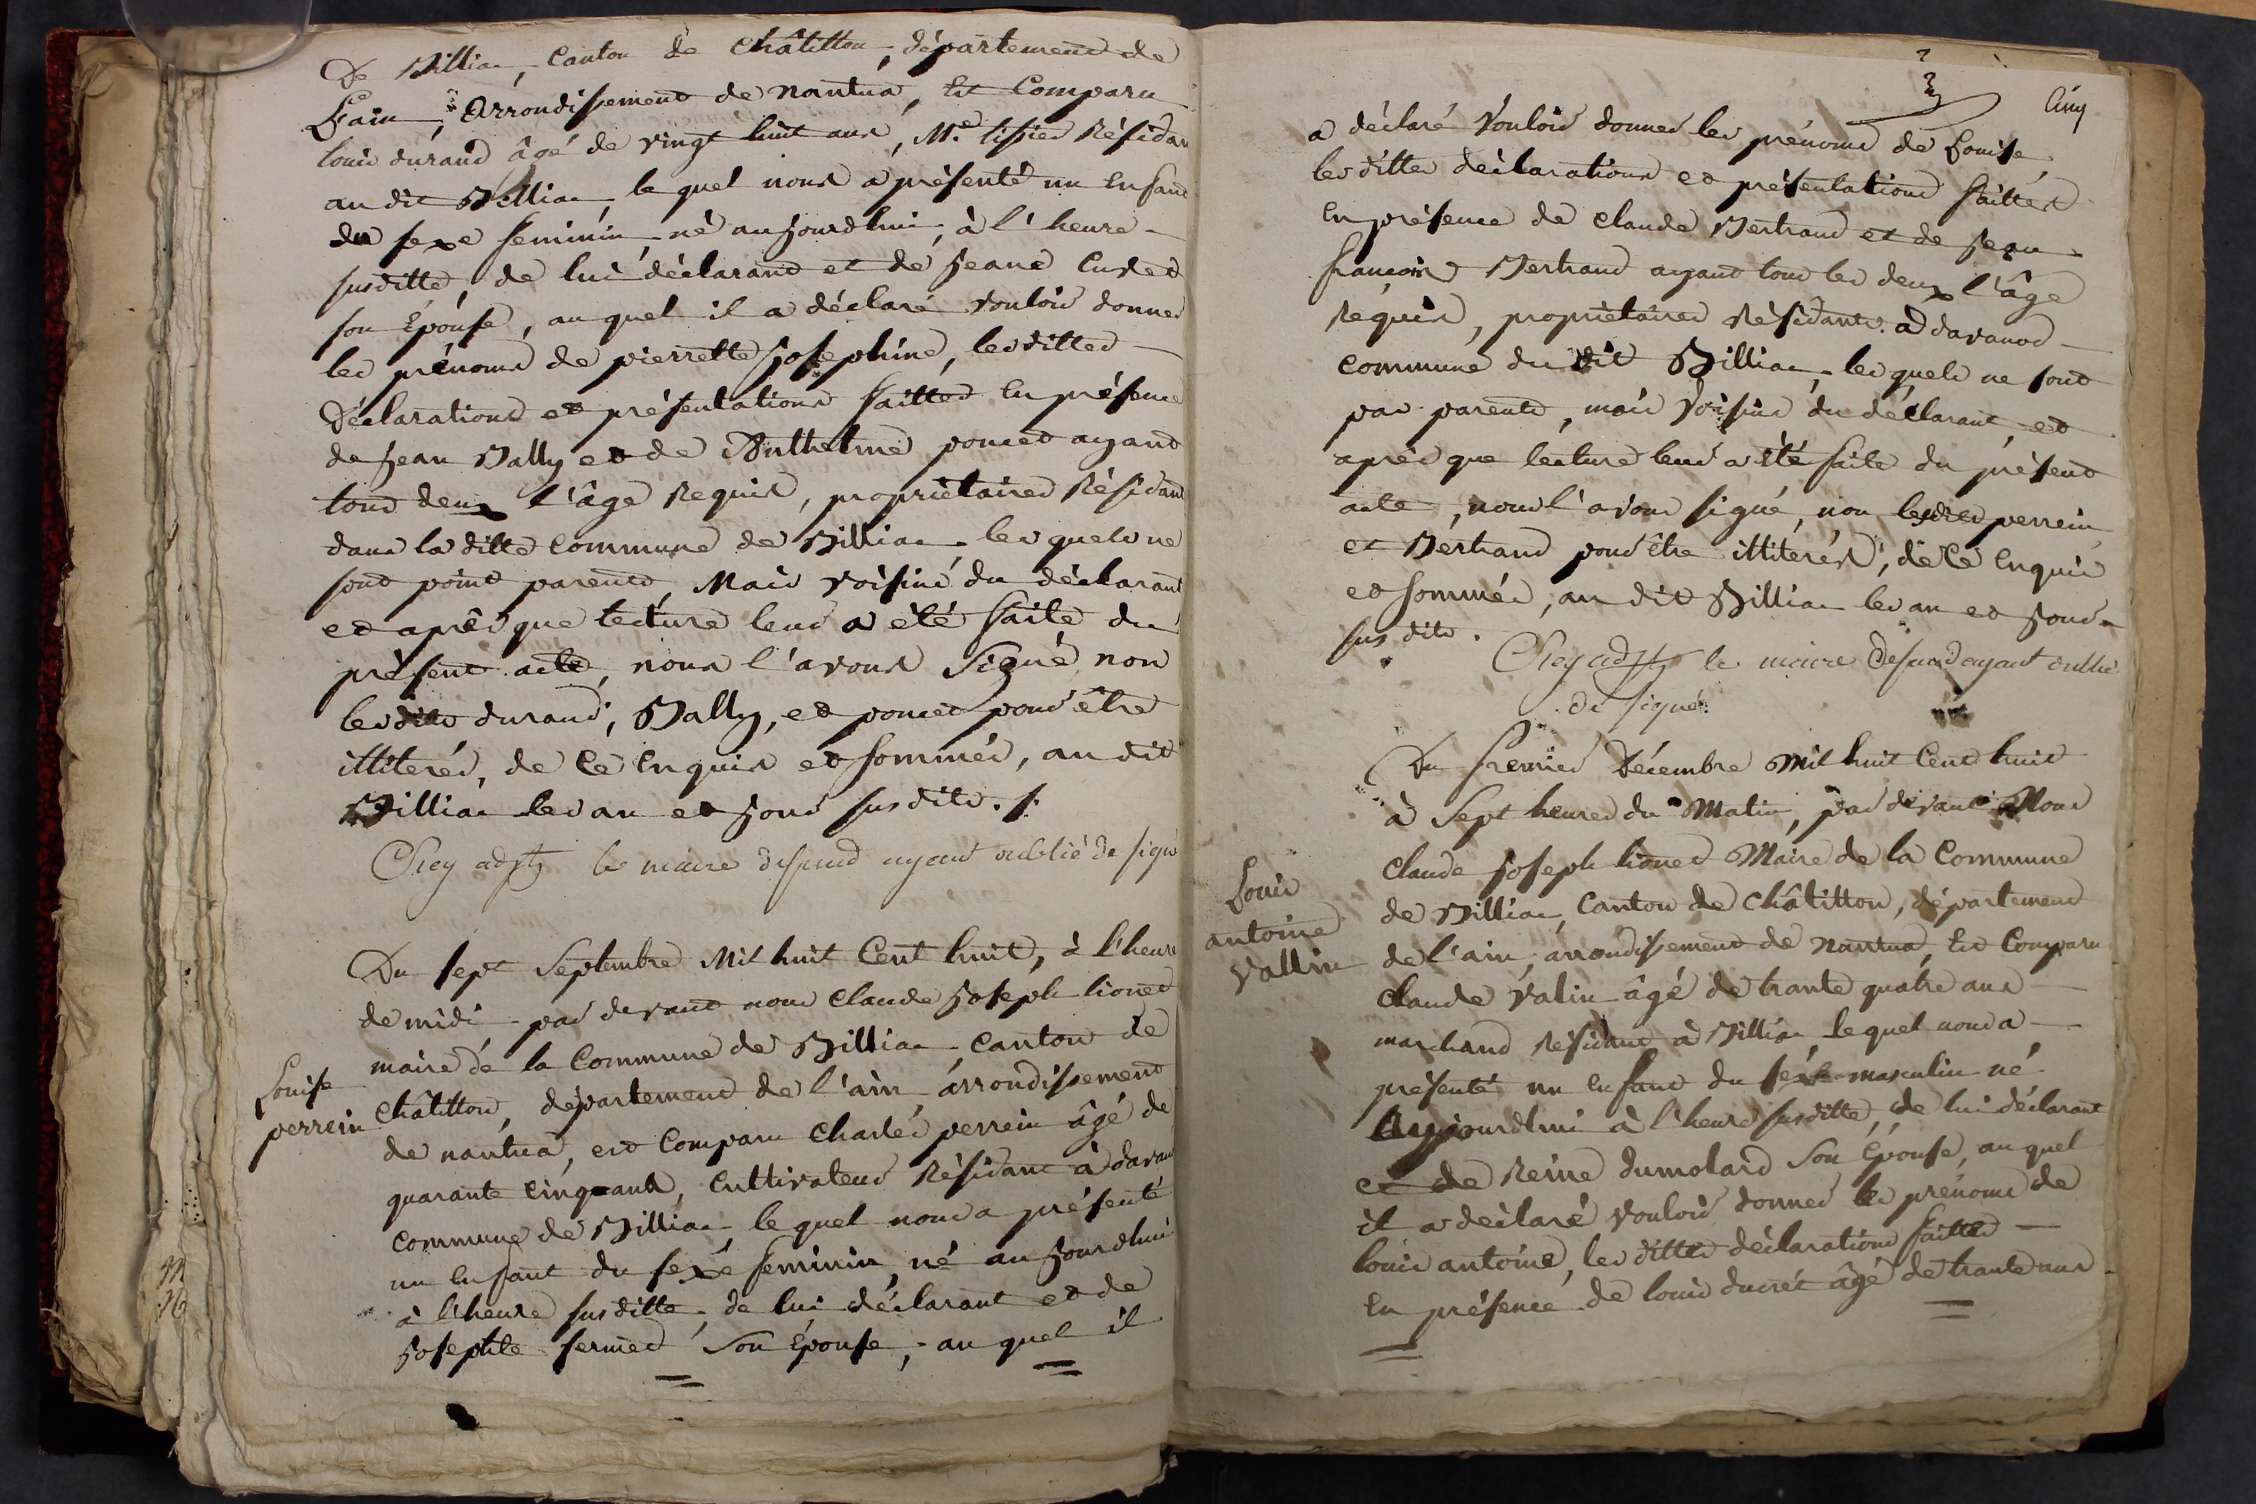 De Billiac, Canton de Châtillon, département de
L'ain, Arrondissement de nantua, Est Comparu
louis durand âgé de vingt huit ans, Me. tissier Résidan
au dit Billiac, le quel nous a présenté un Enfant
du sexe feminin, né aujourdhui, à l'heure
susditte, de lui déclarant et de jeane
son Epouse, au quel il a déclaré vouloir donner
les prénoms de pierrette josephine, lesdittes
Déclarations et présentations faittes En présence
de jean Bally et de Anthelme poncet ayant
tous deux l'âge Requis, propriétaires Résidant
dans la ditte commune de Billiac, les quels ne
sont point parents, Mais voisins du déclarant
et après que lecture leur a été faite du
présent acte, nous l'avons Signé, non
lesdits durand, Bally, et poncet pour être
illiterés, de ce Enquis et sommés, au dit
Billiac les an et jour susdits. /.
Rey adjt le maire defund ayant oublié de signé
Du sept Septembre Mil huit Cent huit, à l'heure
de midi, par devant nous Claude joseph lionet
maire de la Commune de Billiac, Canton de
Louise
perrein
Châtillon, département de l'ain arrondissement
de nantua, est Comparu Charles perrein âgé de
quarante cinq ans, Cultivateur Résidant à davan
commune de Billiac, le quel nous a présenté
un Enfant du sexe feminin, né au jourdhui
à l'heure susditte, de lui déclarant et de
josephte fermet son Epouse, au quel il
3
Cinq
a déclaré vouloir donner les prénoms de Louise,
les dittes déclarations et présentations faittes
En présence de Claude Bertrand et de jean
françois Bertrand ayant tous les deux l'âge
Requis, propriétaires Résidants à davanod
commune du dit Billiac, les quels ne sont
pas parents, mais voisins du déclarant, et
après que lecture leur a été faite du présent
acte, nous l'avons signé, non lesdits perrein
et Bertrand pour être illiterés, de ce Enquis
et sommés, au dit Billiac les an et jour
sus dits.
Rey adjt le maire defund ayant oublié
de signé.
Du premier Décembre Mil huit Cent huit
à Sept heures du Matin, par devant Nous
Claude joseph lionet Maire de la Commune
Louis
antoine
vallin
de Billiac, Canton de Châtillon, département
de l'ain, arrondissement de nantua, Est Comparu
Claude valin âgé de trante quatre ans
marchand Résidant à Billiac, lequel nous a
présenté un Enfant du sexe masculin né
Aujourdhui à l'heure susditte, de lui déclarant
et de Reine dumolard Son Epouse, au quel
il a déclaré vouloir donner les prénoms de
louis antoine, les dittes déclarations faittes
En présence de louis ducrét âgé de trante ans